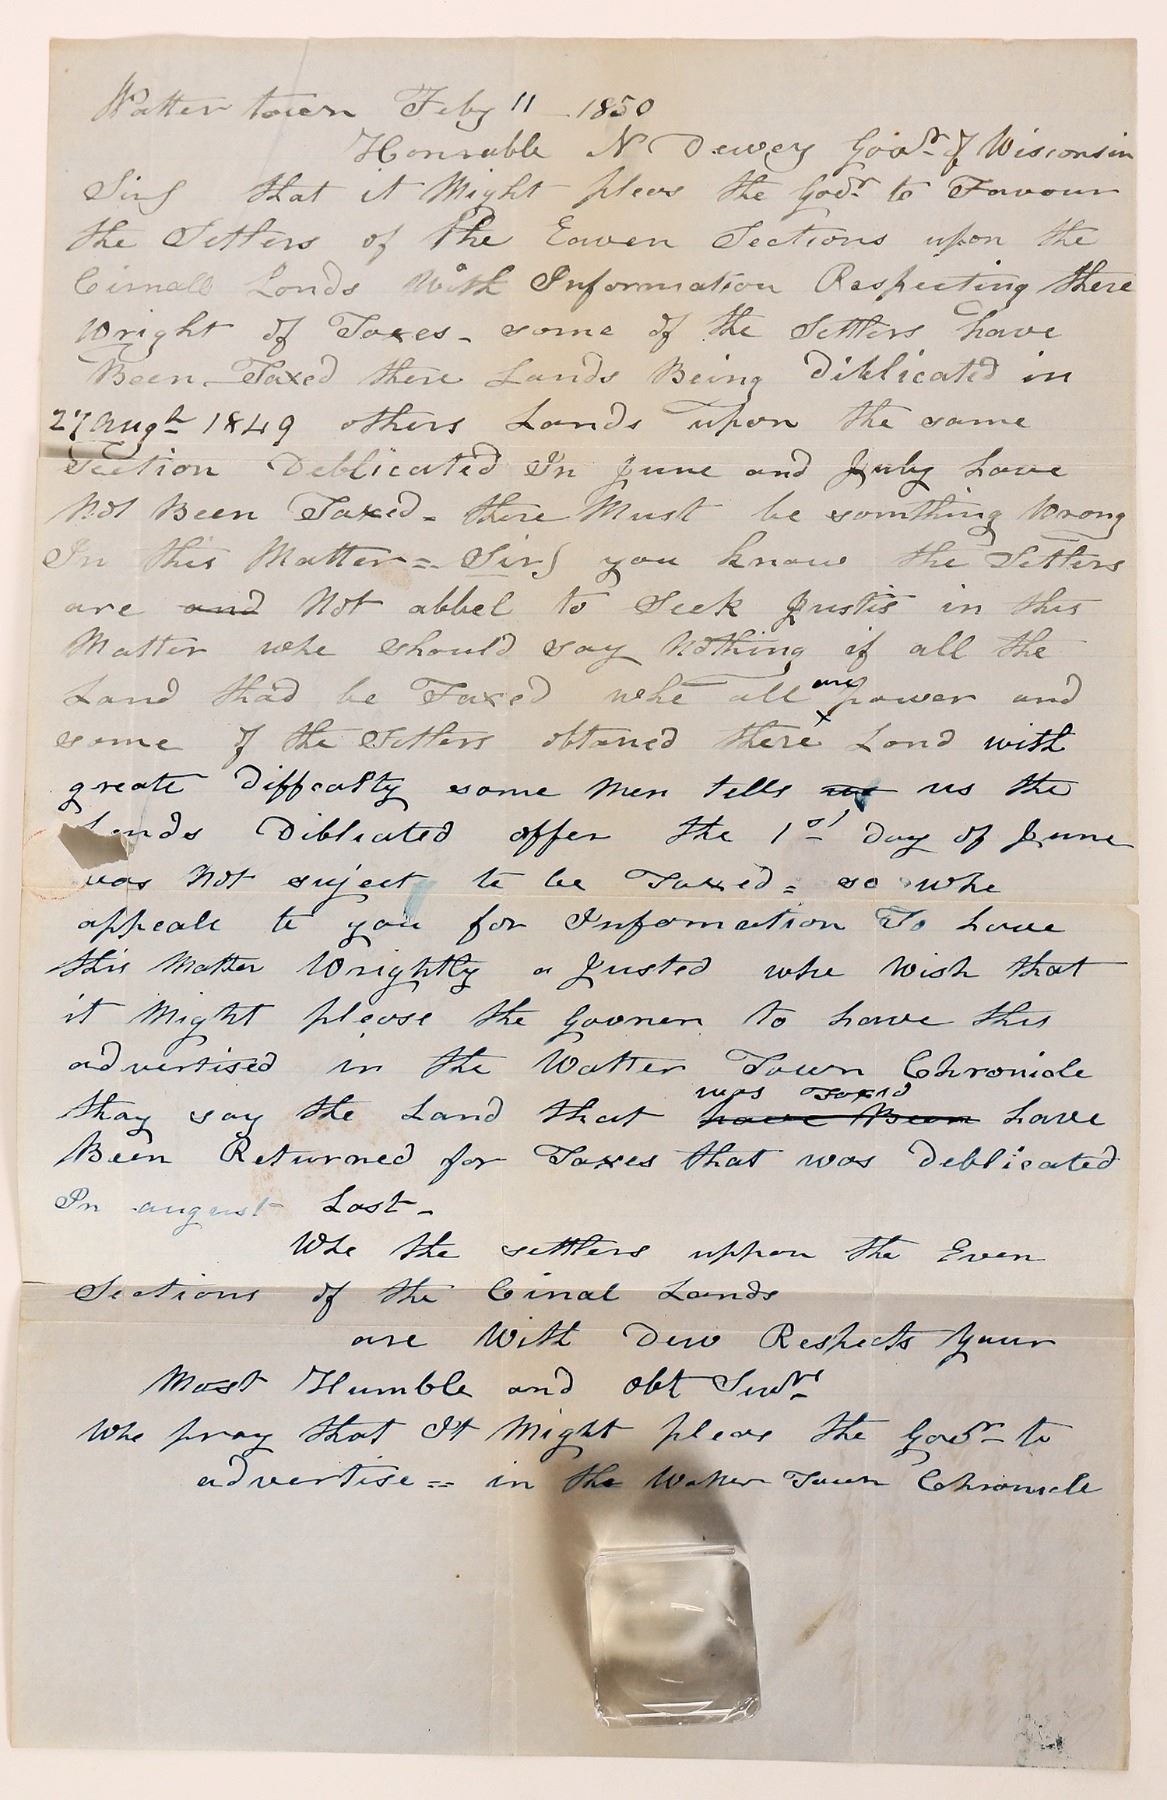 Watter town Feby 11 1850
Honrable N Dewey Govr of Wisconsin
Sirs that it Might pleas the Govr to Favour
the Setlers of the Eaven Sections upon the
Cinall Lands With Information Respecting there
Wright of Taxes - some of the Settlers have
Been Taxed there Lands Being Diblicated in
27 Augt 1849 others Lands upon the same
Section Deblicated In June and July have
Not Been Taxed - there Must be somthing Wrong
In this Matter = Sirs you know the Setters
are and Not abbel to Seek Justis in this
Matter whe should say Nothing if all the
Land thad be Taxed whe all are power and
some of the Setlers obtaned there Land with
greate Diffcalty some Men tells us the
Lands Diblicated offer the 1st Day of June
was Not suject to be Taxed = so whe
appeale to you for Infomation To have
this Matter Wrightly a Justed whe Wish that
it Might please the Govner to have this
advertised in the Watter Town Chronicle
thay say the Land that have Been was Taxed have
Been Returned for Taxes that was Deblicated
In august Last -
Whe the settlers uppon the Even
Sections of the Cinal Lands
are With Dew Respects Your
Most Humble and obt Survts
Whe pray that It Might pleas the Govr to
advertise = in the Watter Town Chronicle